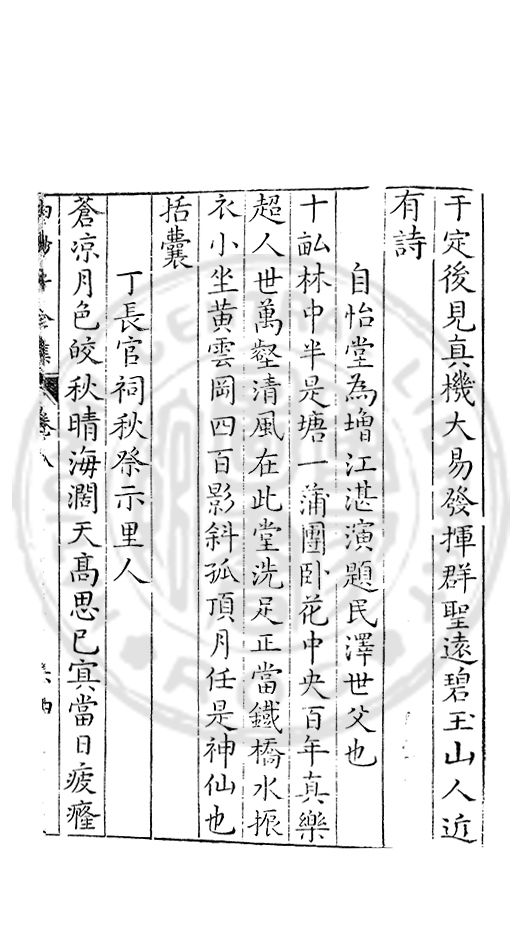 于定後見真機大易發揮群聖遠碧玉山人近
有詩
自怡堂為增江湛演題民澤世父也
十畝林中半是塘一蒲團卧花中央百年真樂
超人世萬壑清風在此堂洗足正當鐵橋水振
衣小坐黄雲岡四百影斜孤頂月任是神仙也
括囊
丁長官祠秋祭示里人
蒼凉月色皎秋晴海濶天髙思已㝠當日疲癃
卷八